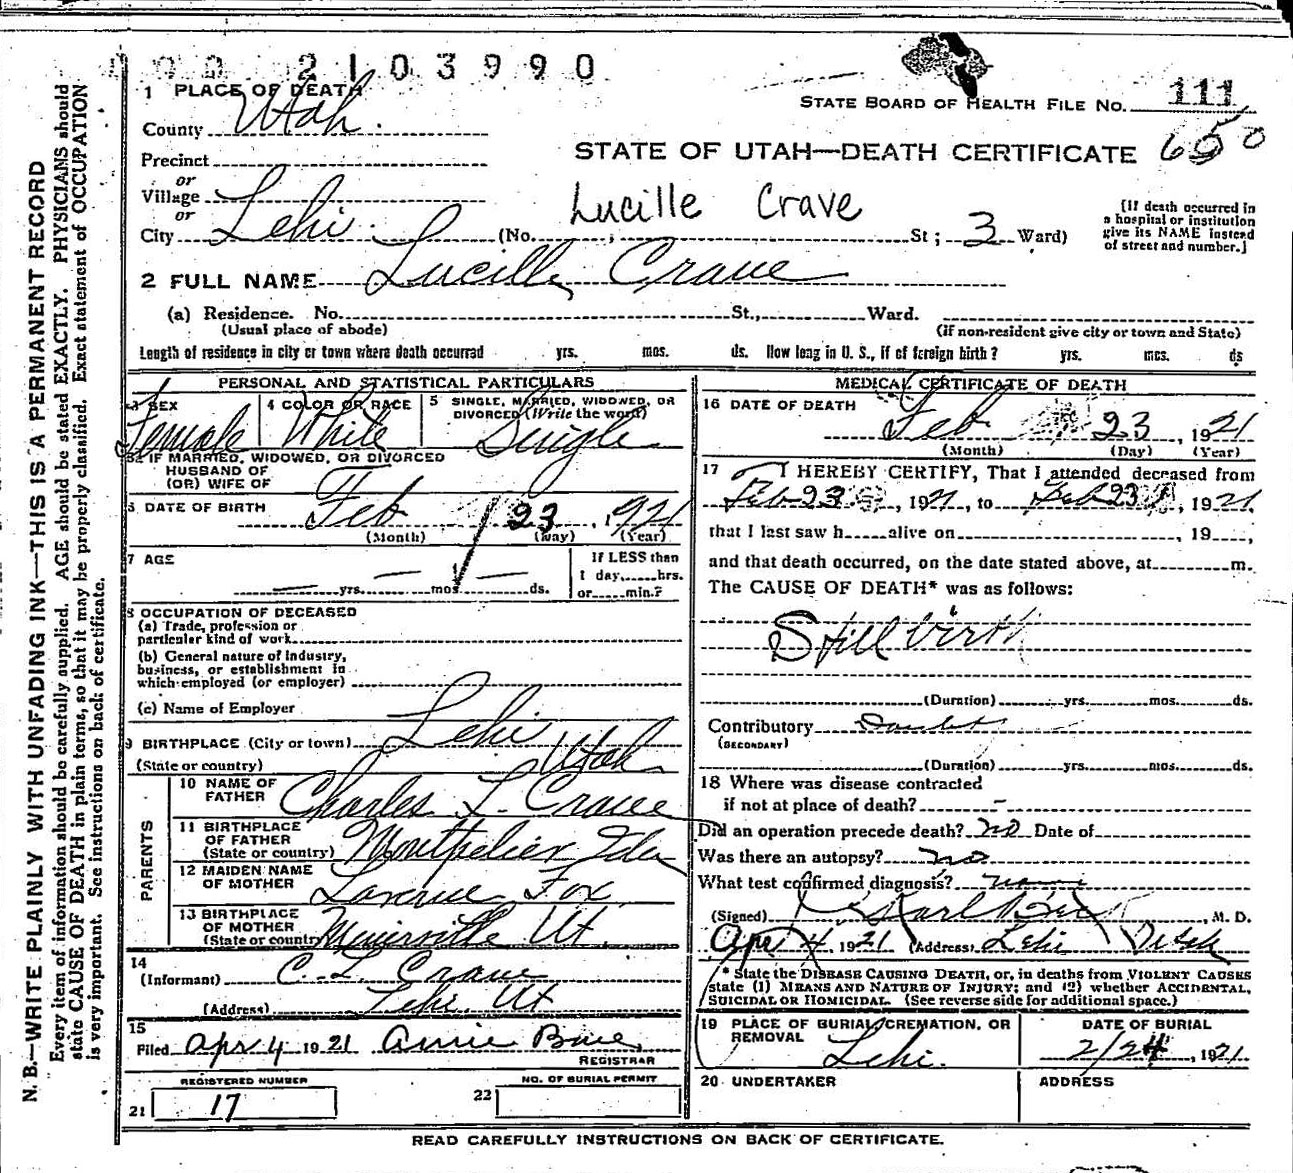 2103990
1 PLACE OF DEATH
STATE BOARD OF HEALTH FILE No. 111
County Utah.
650
Precinct
STATE OF UTAH—DEATH CERTIFICATE
or
Village
Lucille Crave
[If death occurred in
a hospital or institution
give its NAME instead
of street and number.]
or
City Lehi. (No. , St; 3 Ward)
2 FULL NAME Lucille Crave
(a) Residence. No. St., Ward.
(Usual place of abode) (if non-resident give city or town and State)
Length of residence in city or town where death occurred yrs. mos. ds. How long in U. S., if of foreign birth? yrs. mos. ds
PERSONAL AND STATISTICAL PARTICULARS
3 SEX 4 COLOR OR RACE 5 SINGLE, MARRIED, WIDOWED, OR
DIVORCED (Write the word)
Female White Single
5a IF MARRIED, WIDOWED, OR DIVORCED
HUSBAND OF
(OR) WIFE OF
6 DATE OF BIRTH Feb 23, 1921
(Month) (Day) (Year)
7 AGE If LESS than
1 day,.....hrs.
— yrs. — mos. — ds. or.....min.?
8 OCCUPATION OF DECEASED
(a) Trade, profession or
particular kind of work
(b) General nature of industry,
business, or establishment in
which employed (or employer)
(c) Name of Employer
9 BIRTHPLACE (City or town) Lehi
(State or country) Utah
PARENTS
10 NAME OF
FATHER Charles L. Crave
11 BIRTHPLACE
OF FATHER
(State or country) Montpelier Ida
12 MAIDEN NAME
OF MOTHER Fox
13 BIRTHPLACE
OF MOTHER
(State or country) Ut.
14
(Informant) C. L. Crave
(Address) Lehi, Ut
15
Filed Apr 4 1921 Annie
REGISTRAR
REGISTERED NUMBER NO. OF BURIAL PERMIT
21 17 22
MEDICAL CERTIFICATE OF DEATH
16 DATE OF DEATH
Feb 23, 1921
(Month) (Day) (Year)
17 I HEREBY CERTIFY, That I attended deceased from
Feb 23, 1921, to Feb 23, 1921,
that I last saw h.....alive on , 19....,
and that death occurred, on the date stated above, at m.
The CAUSE OF DEATH* was as follows:
Still birth
(Duration) yrs. mos. ds.
Contributory
(SECONDARY)
(Duration) yrs. mos. ds.
18 Where was disease contracted
if not at place of death? -
Did an operation precede death? no Date of
Was there an autopsy? no
What test confirmed diagnosis?
(Signed) , M. D.
Apr 4 1921 (Address) Lehi Utah
* State the DISEASE CAUSING DEATH, or, in deaths from VIOLENT CAUSES
state (1) MEANS AND NATURE OF INJURY; and (2) whether ACCIDENTAL,
SUICIDAL OR HOMICIDAL. (See reverse side for additional space.)
19 PLACE OF BURIAL, CREMATION, OR
REMOVAL Lehi.
DATE OF BURIAL
2/24, 1921
20 UNDERTAKER ADDRESS
READ CAREFULLY INSTRUCTIONS ON BACK OF CERTIFICATE.
N. B.—WRITE PLAINLY WITH UNFADING INK—THIS IS A PERMANENT RECORD
Every item of information should be carefully supplied. AGE should be stated EXACTLY. PHYSICIANS should
state CAUSE OF DEATH in plain terms, so that it may be properly classified. Exact statement of OCCUPATION
is very important. See instructions on back of certificate.